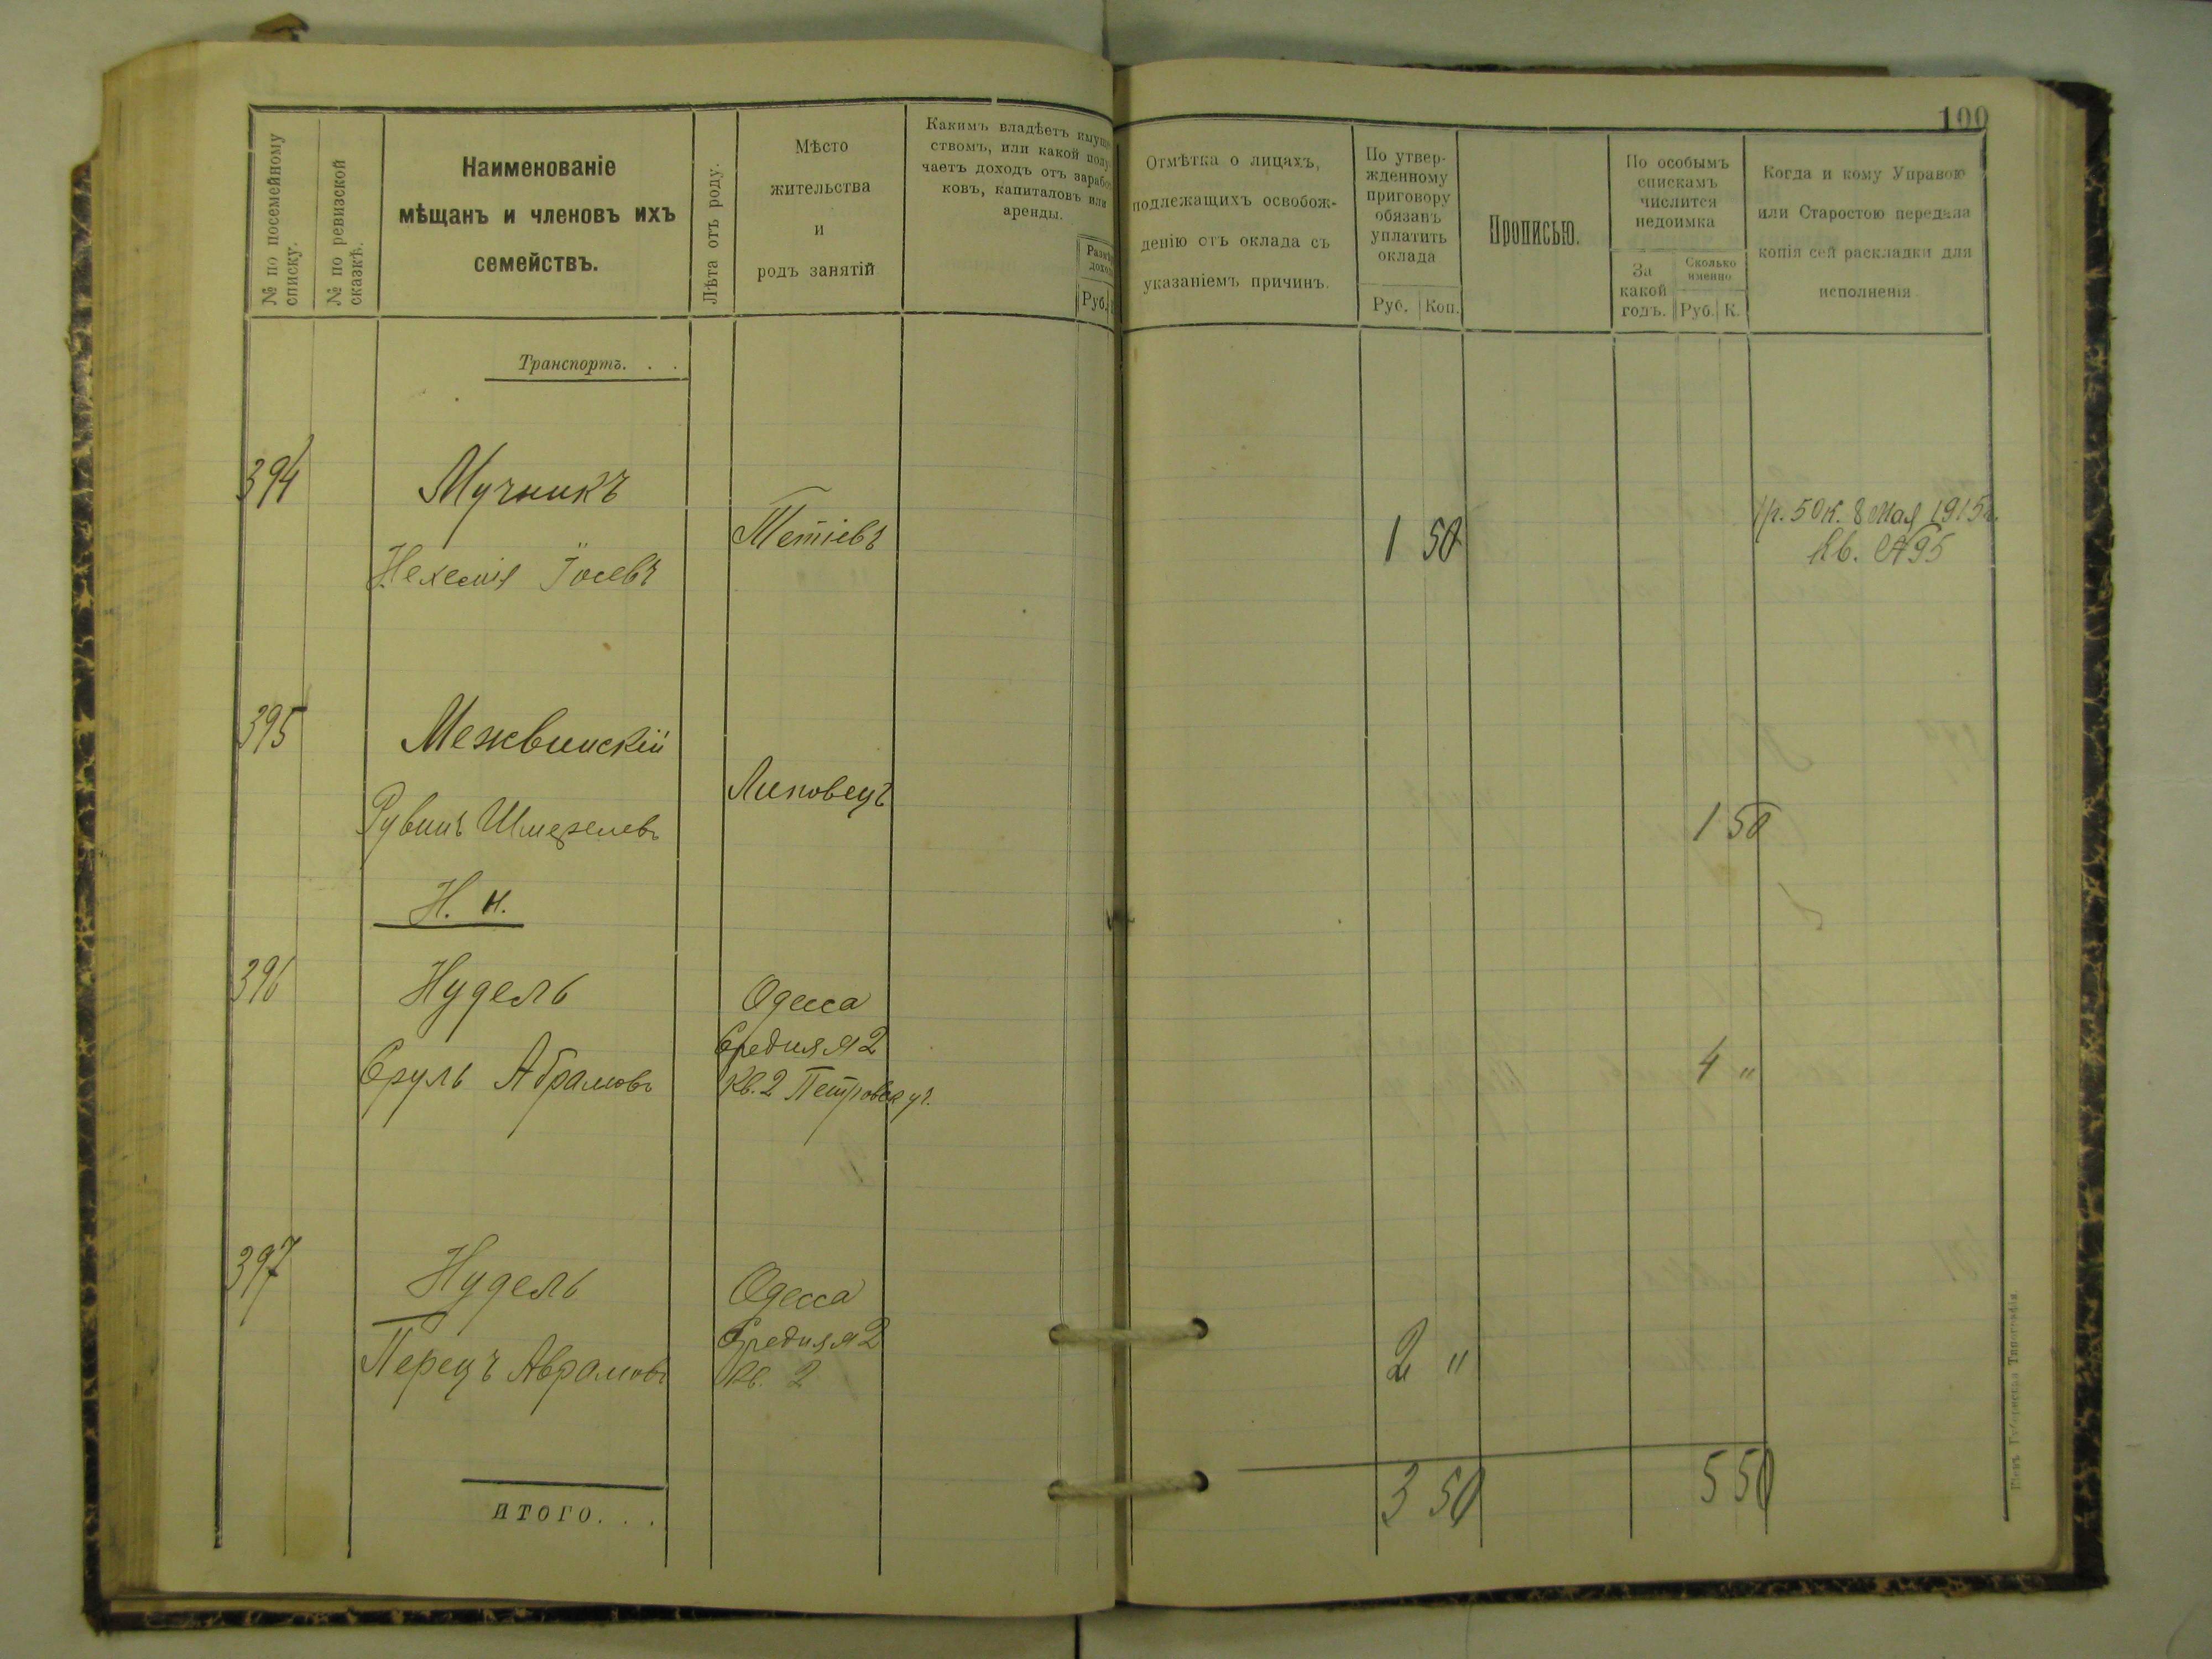 100
№ по посемейному
списку.
№ по ревизской
сказкѣ.
Наименованіе
мѣщанъ и членовъ ихъ
семействъ.
Лѣта отъ роду.
Мѣсто
жительства
и
родъ занятій
Какимъ владѣетъ имуще
ствомъ, или какой полу
чаетъ доходъ отъ зарабо
ковъ, капиталовъ или
аренды.
Размѣ
дохо
Руб.
Отмѣтка о лицахъ,
подлежащихъ освобож-
денію отъ оклада съ
указаніемъ причинъ.
По утвер-
жденному
приговору
обязанъ
уплатить
оклада
Руб. Коп.
Прописью.
По особымъ
спискамъ
числится
недоимка
За
какой
годъ.
Сколько
именно
Руб. К.
Когда и кому Управою
или Старостою передана
копія сей раскладки для
исполненія.
Транспортъ. . .
394
Мучникъ
Нехемія Іосевъ
Тетіевъ
1 50
1р. 50к. 8 Мая 1915г.
Кв. № 95
395
Межвинскій
Рувинъ Шмерелевъ
Липовецъ
1 50
Н. н.
396
Нудель
Сруль Абрамовъ
Одесса
Средняя 2
Кв. 2 Петровск уч.
4 "
397
Нудель
Перецъ Аврамовъ
Одесса
Средняя 2
Кв. 2
2 "
ИТОГО. . .
3 50
5 50
Кіевъ Губернская Типографія